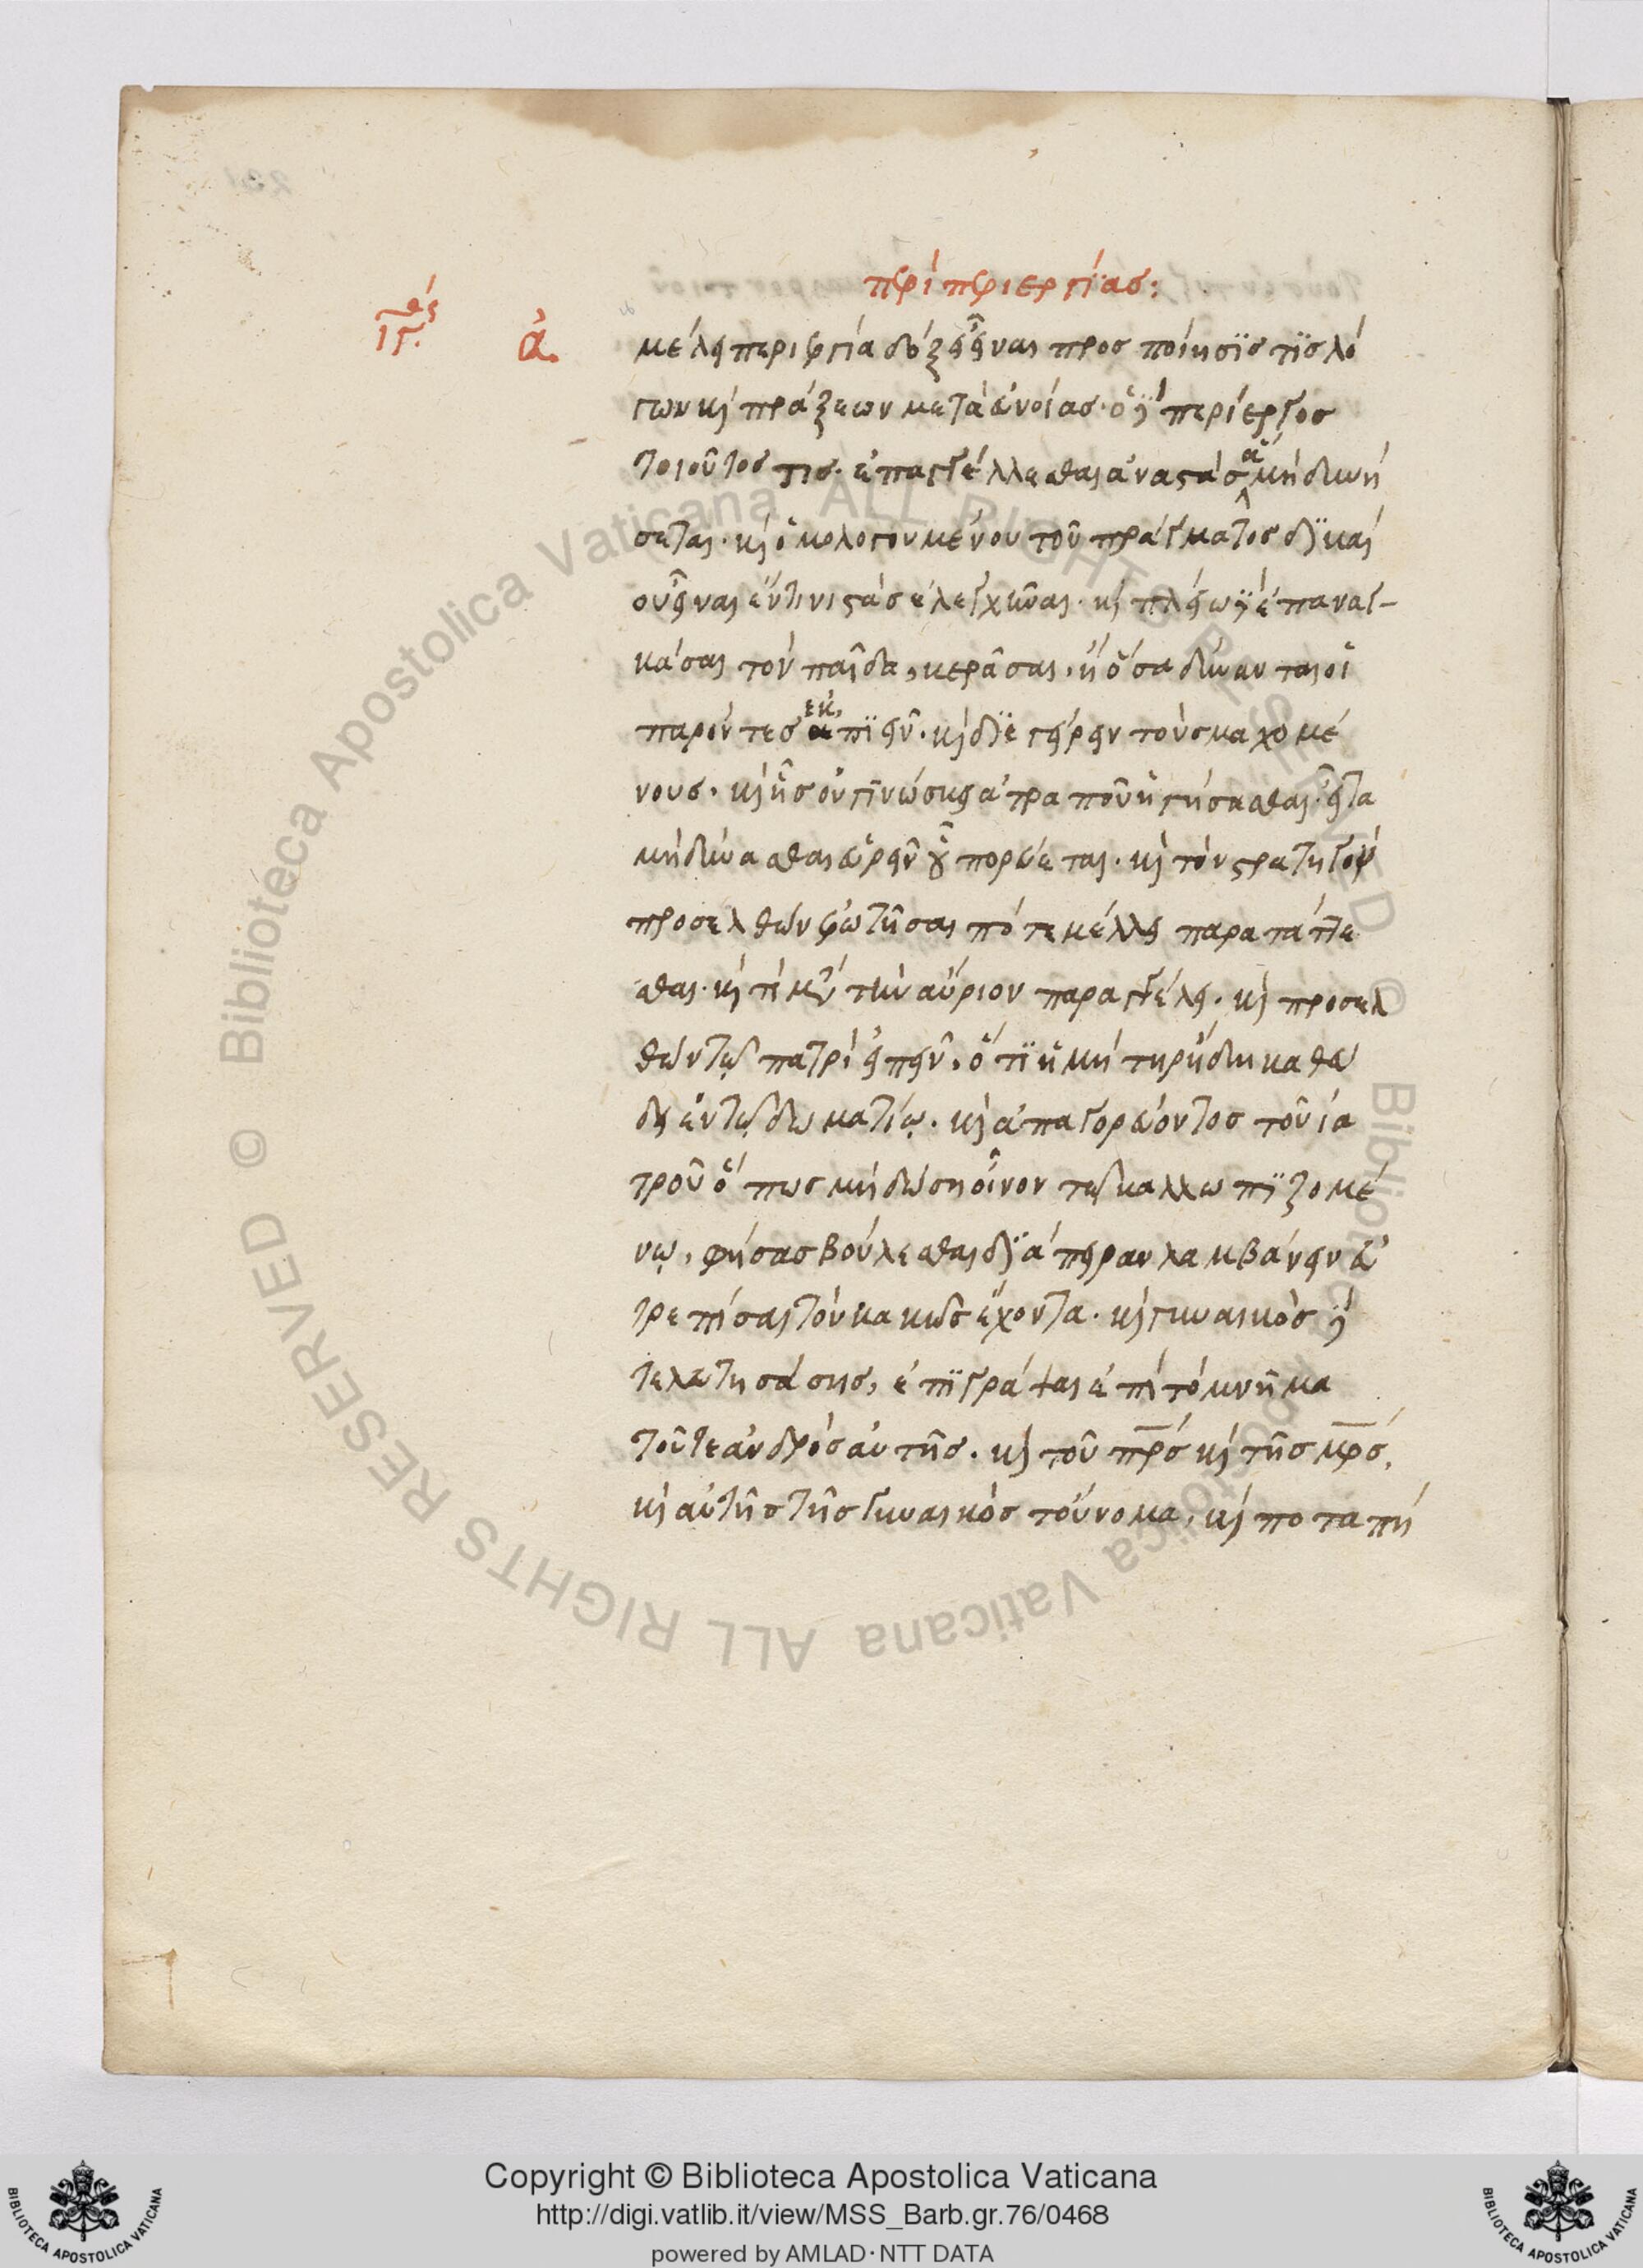 περὶ περιεργίας:
ιγ.
ἀ.
μέλει περιεργία δόξει εἶναι προσποίησίς τϊς λό
γων καὶ πράξεων μετὰ εὐνοίας· ὁ δὲ περίεργος
τοιοῦτος τις· ἐπαγγέλλεσθαι ἀναστὰς ἃ μὴ δυνή
σεται· καὶ ὁμολογουμένου τοῦ πράγματος δϊκαί
ου εἶναι ἔντινι στὰς ἐλεγχθῆναι· καὶ πλείω δὲ ἐπαναγ-
κάσαι τὸν παῖδα, κεράσαι, ἢ ὅσα δύνανται οἱ
παρόντες ἐκπϊεῖν· καὶ δϊείργειν τοὺς μαχομέ
νους· καὶ ἧς οὐ γϊνώσκει ἀτραποῦ ἡγήσασθαι· εἶτα
μὴ δύνασθαι εὑρεῖν οὗ πορεύεται· καὶ τὸν στρατηγὸν
προσελθὼν ἐρωτῆσαι πότε μέλλει παρατάττε
σθαι· καὶ τί μετὰ τὴν αὔριον παραγγέλει· καὶ προσελ
θὼν τῷ πατρὶ εἰπεῖν, ὅτϊ ἡ μήτηρ ἤδη καθεύ
δει ἐν τῷ δωματίῳ· καὶ ἀπαγορεύοντος τοῦ ἰα
τροῦ ὅπως μὴ δώσῃ οἶνον τῷ καλλωπϊζομέ
νῳ, φήσας βούλεσθαι δϊάπειραν λαμβάνειν εὐ
τρεπίσαι τὸν κακῶς ἔχοντα· καὶ γυναικὸς δὲ
τελευτησάσης, ἐπϊγράψαι ἐπὶ τὸ μνῆμα
τοῦ τε ἀνδρὸς αὐτῆς· καὶ τοῦ πρς καὶ τῆς μρς,
καὶ αὐτῆς τῆς γυναικὸς τοὔνομα, καὶ ποταπή
Copyright © Biblioteca Apostolica Vaticana
http://digi.vatlib.it/view/MSS_Barb.gr.76/0468
powered by AMLAD·NTT DATA
BIBLIOTECA APOSTOLICA VATICANA
BIBLIOTECA APOSTOLICA VATICANA
© Biblioteca Apostolica Vaticana ALL RIGHTS RESERVED © Biblioteca Apostolica Vaticana ALL RIGHTS RESERVED